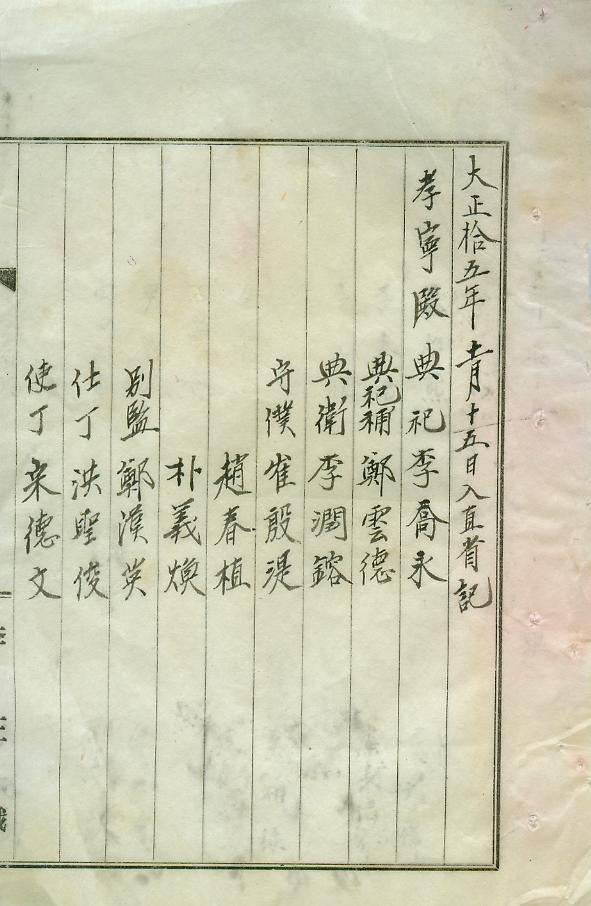 大正拾五年十二月十五日入直省記
孝寧殿 典祀李喬永
典祀補 鄭雲德
典衛 李潤鎔
守僕 崔殷湜
趙春植
朴義煥
別監 鄭漢英
仕丁 洪聖俊
使丁 宋德文
李王職